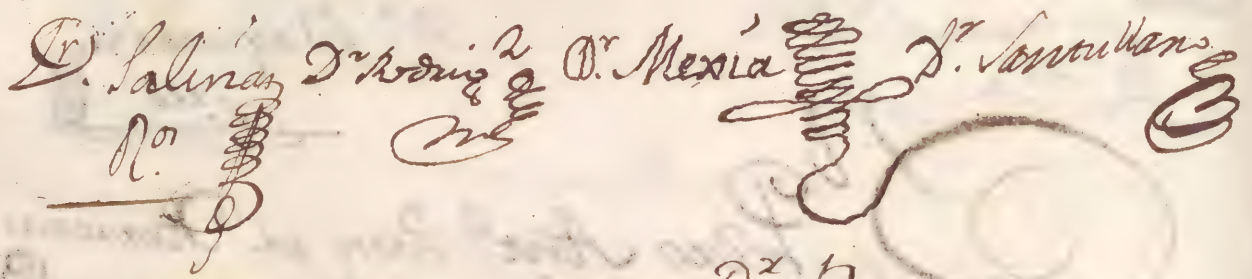 Dr. Salinas Dr Rodrig2 Dr. Mexía Dr. Santullano
Ror.
Dr